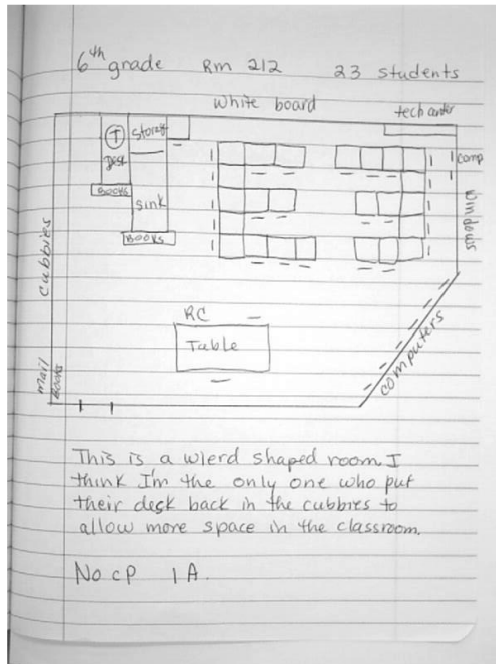 6th grade Rm 212 23 students
White board
tech center
T
Desk
Storage
comp
Books
sink
Books
windows
cubbies
RC
Table
computers
mail
Books
This is a wierd shaped room. I
think I'm the only one who put
their desk back in the cubbies to
allow more space in the classroom.
No CP 1 A.